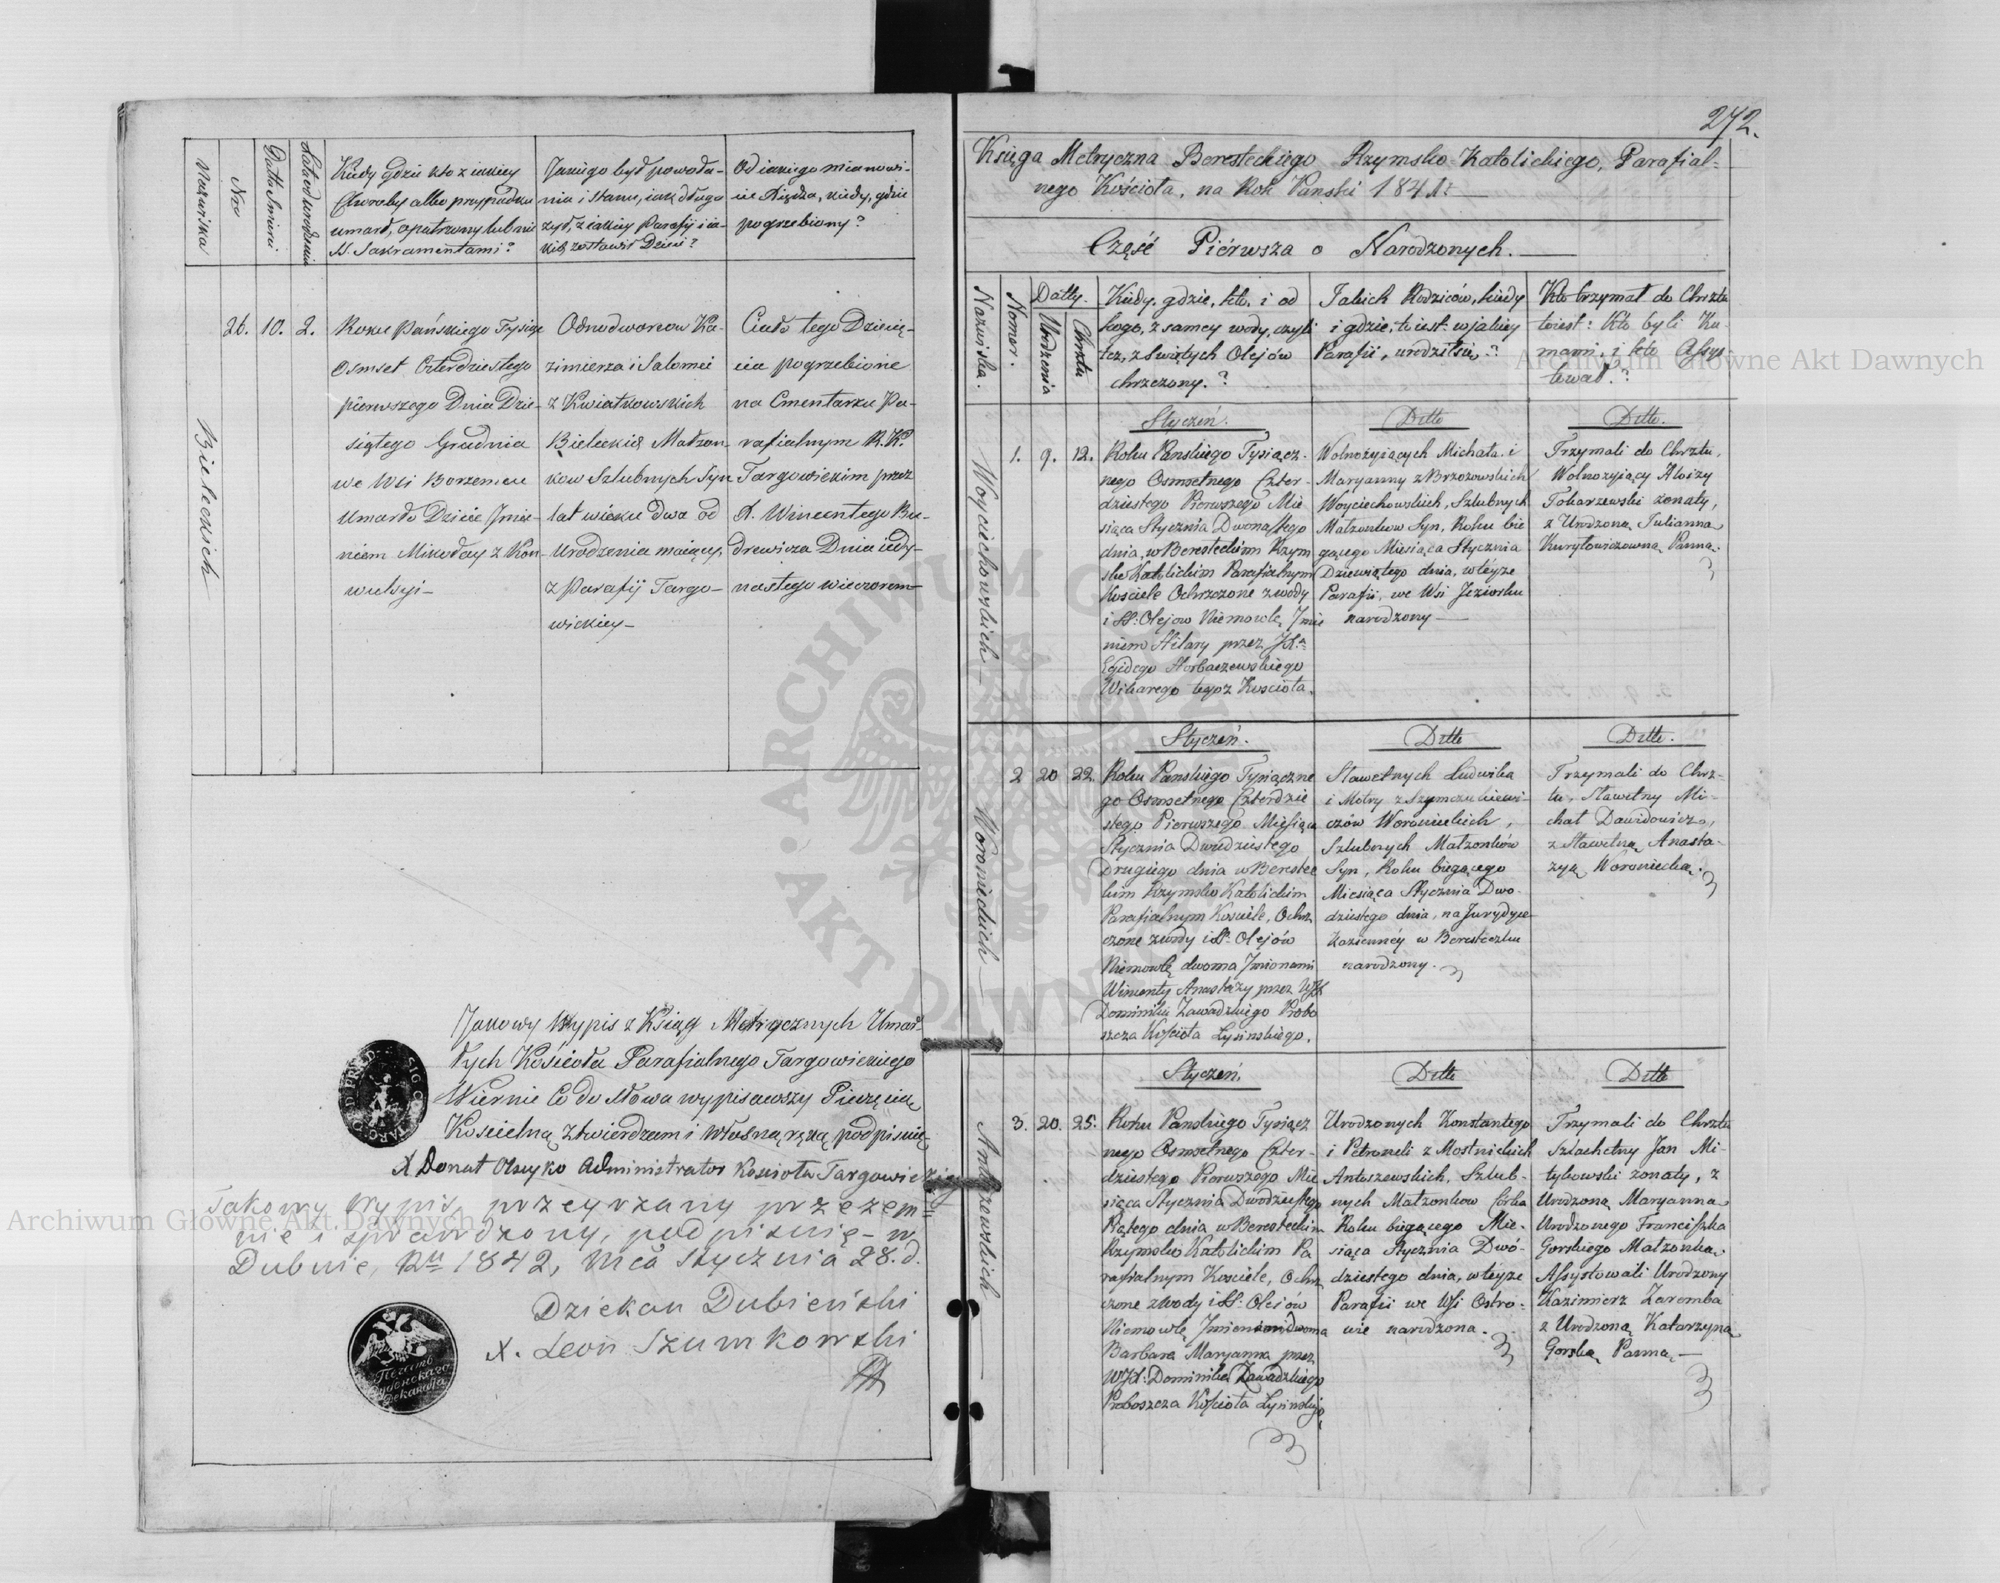 Nazwiska
Nro
Datta Smierci
Lata od urodzenia
Kiedy gdzie kto z iakiey
Choroby albo przypadku
umarł, opatrzony lub nie
SS. Sakramentami?
Jakiego był powoła-
nia i stanu, iak długo
żył, z iakiey Parafii i ia-
kich zostawił Dzieci?
Od iakiego mianowi-
cie Xiędza, kiedy, gdzie
pogrzebiony?
Bieleckich
26. 10. 2.
Roku Pańskiego Tysiąc
Osmset Czterdziestego
pierwszego Dnia Dzie-
siątego Grudnia
we Wsi Borzemcu
umarło Dziecie Imie-
niem Mikołay z Kon-
wulsyi-
Odnodworców Ka-
zimierza i Salomei
z Kwiatkowskich
Bieleckich Małżon-
ków Szlubnych Syn
lat wieku dwa od
Urodzenia maiący,
z Parafij Targo-
wickiey-
Ciało tego Dziecię-
cia pogrzebione
na Cmentarzu Pa-
rafialnym R. K.
Targowickim przez
X. Wincentego Bu-
drewicza Dnia iedy-
nastego wieczorem-
Jakowy Wypis z Ksiąg Metrycznych Umar-
łych Kościoła Parafialnego Targowickiego
Wiernie Co do Słowa wypisawszy Pieczęcią
Kościelną ztwierdzam i własną ręką podpisuię
X Donat Administrator Kościoła Targowic
Takowy wypis, przeyrzany przezem=
nie i sprawdzony, podpisuię - w
Dubnie, Ru 1842, Mca Stycznia 28. d.
Dziekan Dubieński
X. Leon Szumkowski
Печать
Дубенскаго
Деканата
272.
Księga Metryczna Beresteckiego Rzymsko-Katolickiego, Parafial-
nego Kościoła, na Rok Pański 1841.
Część Piérwsza o Narodzonych.
Nazwiska.
Nomer.
Datty.
Urodzenia
Chrztu
Kiedy, gdzie, kto, i od
kogo, z samey wody, czyli
też, z Swiętych Olejów
chrzczony.?
Jakich Rodziców, kiedy
i gdzie, to iest: w jakiey
Parafii, urodził się.?
Kto trzymał do Chrztu
toiest: Kto byli Ku-
mami, i kto Assys-
tował.?
Woyciechowskich
Styczeń.
Ditto
Ditto.
1. 9. 12.
Roku Panskiego Tysiącz-
nego Osmsetnego Czter-
dziestego Pierwszego Mie
siąca Stycznia Dwonastego
dnia, w Beresteckim Rzym
sko Katolickim Parafialnym
Kosciele Ochrzczone z wody
i SS: Olejow Niemowlę, Imie
niem Hilary przez JX.a
Egidego Horbaczewskiego
Wikarego tegoż Kosciola.
Wolnożyiących Michała i
Maryanny z Brzozowskich
Woyciechowskich, Szlubnych
Małżonkow Syn, Roku bie
gącego Miesiąca Stycznia
Dziewiątego dnia, w teyże
Parafii, we Wsi Jeziorku
narodzony
Trzymali do Chrztu,
Wolnożyiący Aloizy
Tokarzewski żonaty,
z Urodzoną Julianną
Kuryłowiczowną, Panną.
Woronieckich
Styczeń.
Ditto
Ditto.
2 20 22.
Roku Panskiego Tysiączne
go Osmsetnego Czterdzie
stego Pierwszego Miesiąca
Stycznia Dwudziestego
Drugiego dnia w Berestec
kim Rzymsko Katolickim
Parafialnym Kosciele, Ochrz
czone z wody i SS. Olejów
Niemowlę, dwoma Imionami
Wincenty Anastazy przez WJX
Dominika Zawadzkiego Probo
szcza Kościoła Łysinskiego.
Sławetnych Ludwika
i Motry z Szymczukiewi-
czów Woronieckich,
Szlubnych Małżonków
Syn, Roku bieżącego
Miesiąca Stycznia Dwo-
dziestego dnia, na Jurydyce
Kazienney w Beresteczku
narodzony.
Trzymali do Chrz-
tu, Sławetny Mi-
chał Dawidowicz,
z Sławetną Anasta-
zyą Woroniecką.
Antuszewskich
Styczeń.
Ditto
Ditto
3. 20. 25.
Roku Panskiego Tysiącz
nego Osmsetnego Czter-
dziestego Pierwszego Mie
siąca Stycznia Dwódziestego
Piątego dnia w Beresteckim
Rzymsko Katolickim Pa
rafialnym Kosciele, Ochrz
czone z Wody i SS: Olejów
Niemowlę Imionami dwoma
Barbara Maryanna przez
WJX: Dominika Zawadzkiego
Proboszcza Kościoła Łysinskiego
Urodzonych Konstantego
i Petroneli z Mostnickich
Antuszewskich, Szlub-
nych Małżonkow Córka
Roku biegącego Mie-
siąca Stycznia Dwó-
dziestego dnia, w teyże
Parafii we Wsi Ostro-
wie narodzona.
Trzymali do Chrztu
Szlachetny Jan Mi-
tykowski żonaty, z
Urodzoną Maryanną
Urodzonego Franciszka
Gorskiego Małżonką.
Assystowali Urodzony
Kazimierz Zaremba
z Urodzoną Katarzyną
Gorską Panną.
Archiwum Główne Akt Dawnych
Archiwum Główne Akt Dawnych